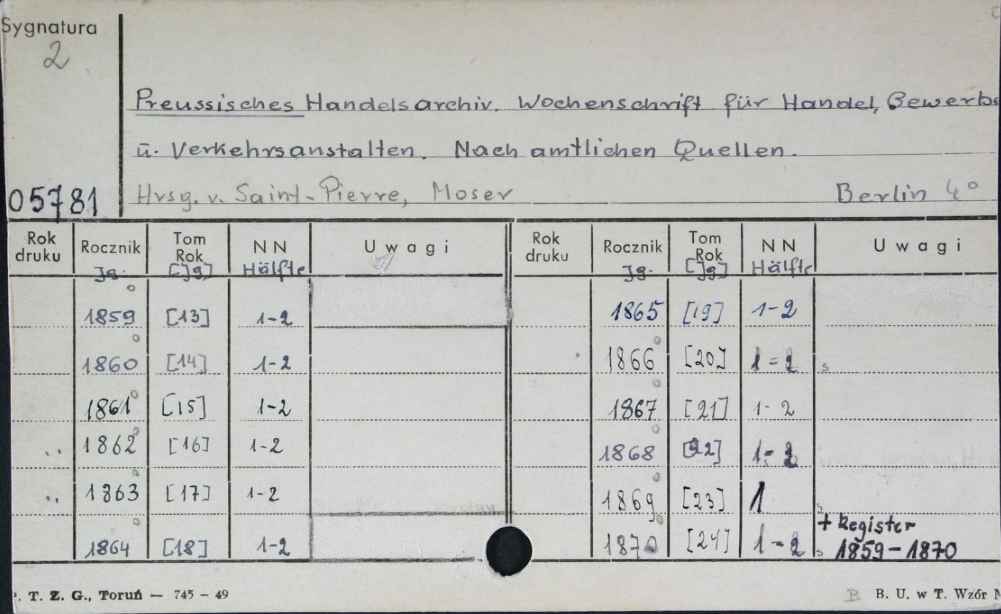 Sygnatura
2
Preussisches Handelsarchiv. Wochenschrift für Handel, Gewerbs
u. Verkehrsanstalten. Nach amtlichen Quellen.
05781 Hrsg. v. Saint-Pierre, Moser Berlin 4°
Rok druku Rocznik Jg. Tom Rok [Jg] NN Hälfte Uwagi Rok druku Rocznik Jg. Tom Rok [Jg] NN Hälfte Uwagi
1859 [13] 1-2 1865 [19] 1-2
1860 [14] 1-2 1866 [20] 1-2
1861 [15] 1-2 1867 [21] 1-2
1862 [16] 1-2 1868 [22] 1-2
1863 [17] 1-2 1869 [23] 1
1864 [18] 1-2 1870 [24] 1-2 + Register
1859-1870
P. T. Z. G., Toruń — 745 - 49 B B. U. w T. Wzór N